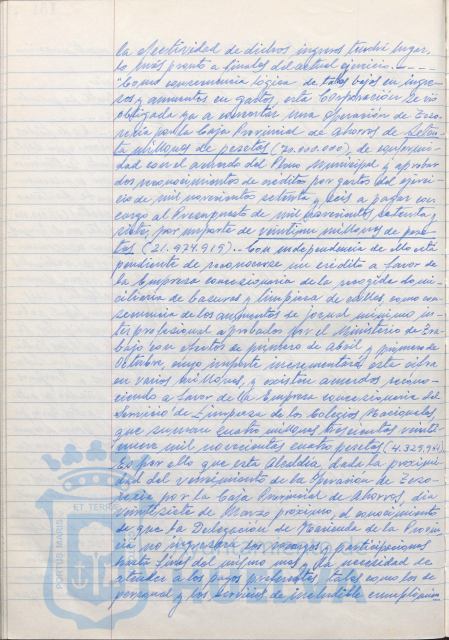 la efectividad de dichos ingresos tendrá lugar,
lo más pronto a finales del actual ejercicio.
"Como consecuencia lógica de tales bajas en ingre-
sos y aumentos en gastos, esta Corporación se vio
obligada ya a concertar una Operación de Teso-
rería con la Caja Provincial de Ahorros de seten-
ta millones de pesetas (70.000.000), de conformi-
dad con el acuerdo del Pleno Municipal y aprobar
dos reconocimientos de créditos por gastos del ejerci-
cio de mil novecientos setenta y seis a pagar con
cargo al Presupuesto de mil novecientos setenta y
siete, por importe de veintiun millones de pese-
tas (21.974.919). Con independencia de ello está
pendiente de reconocerse un crédito a favor de
la Empresa concesionaria de la recogida domi-
ciliaria de basuras y limpieza de calles, como con-
secuencia de los aumentos de jornal mínimo in-
terprofesional aprobados por el Ministerio de Tra-
bajo con efectos de primero de abril y primero de
Octubre, cuyo importe incrementará esta cifra
en varios millones, y existen acuerdos recono-
ciendo a favor de la Empresa concesionaria del
Servicio de Limpieza de los Colegios Nacionales,
que suman cuatro millones trescientas veinti-
nueve mil novecientas cuatro pesetas (4.329.904).
Es por ello que esta Alcaldía, dada la proximi-
dad del vencimiento de la Operación de Teso-
rería por la Caja Provincial de Ahorros, día
veintisiete de Marzo próximo, el conocimiento
de que la Delegación de Hacienda de la Provin-
cia no ingresará los recargos y participaciones
hasta fines del mismo mes y la necesidad de
atender a los pagos preferentes, tales como los de
personal y los servicios de ineludible cumplimien-
ET TERRAE
PORTUS MARIS